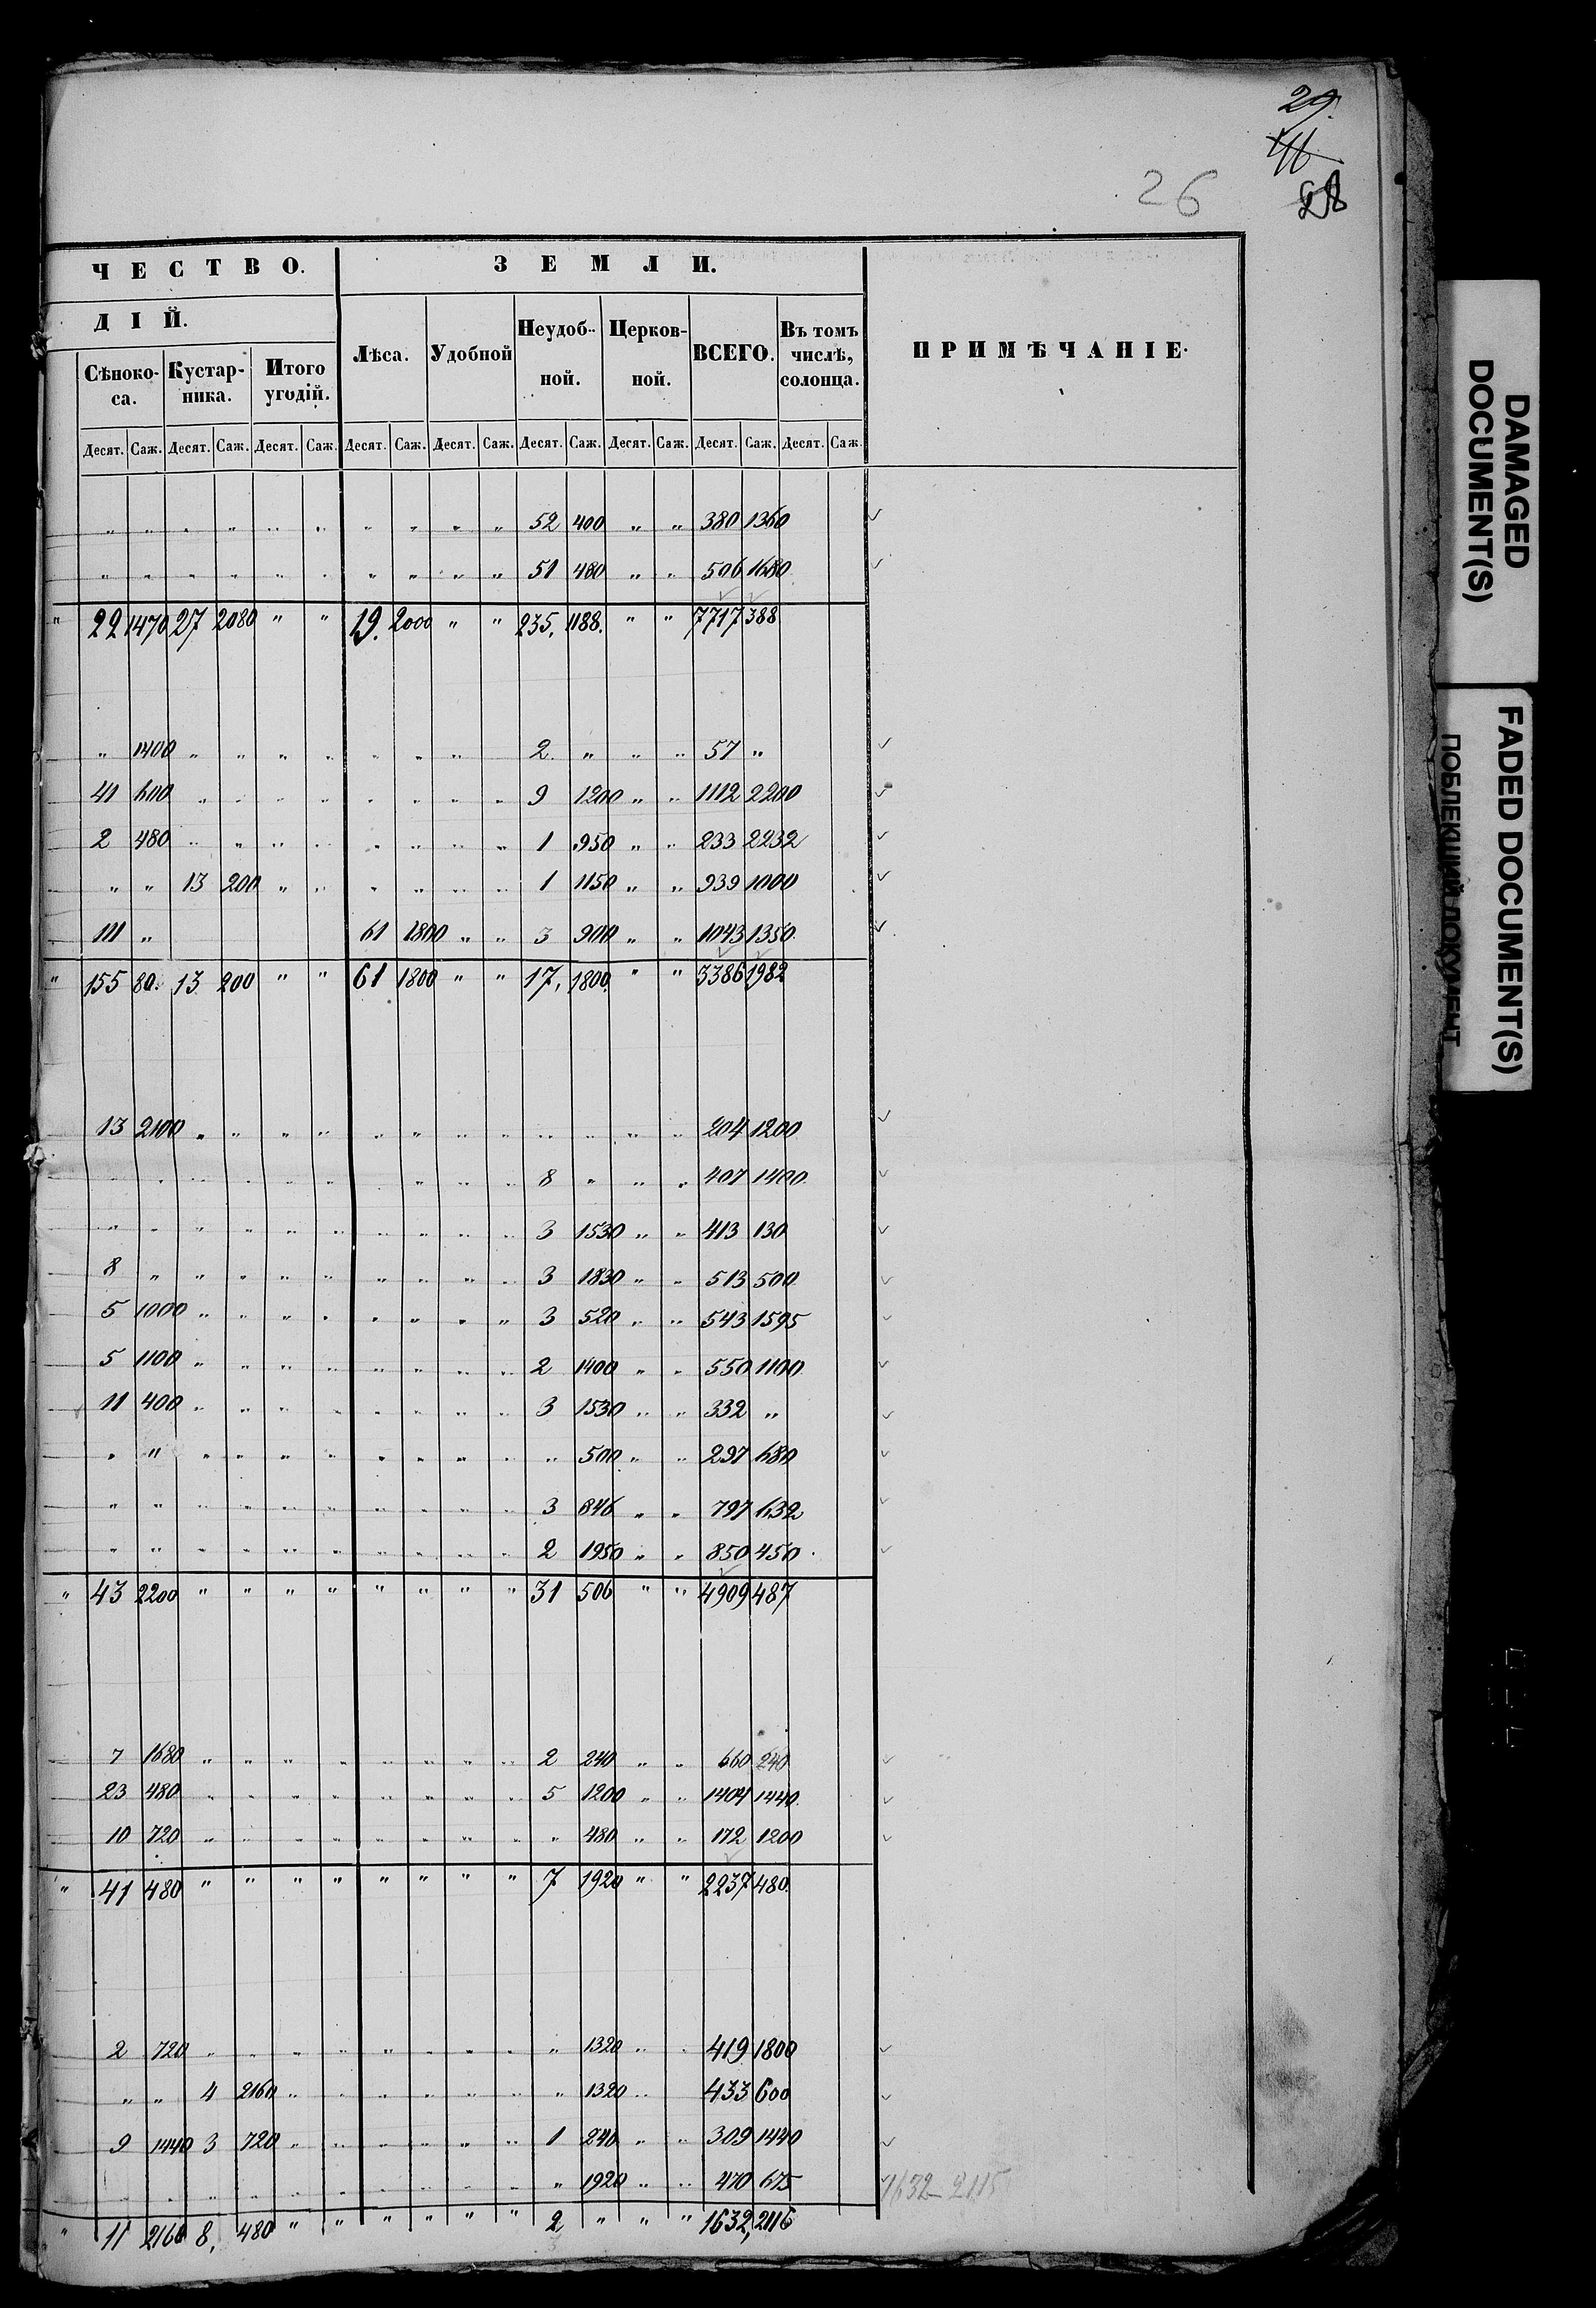 29.
46
28
26
ЧЕСТВО. ЗЕМЛИ.
ДІЙ.
Сѣнокоса. Кустарника. Итого угодій. Лѣса. Удобной Неудобной. Церковной. ВСЕГО. Въ томъ числѣ, солонца. ПРИМѢЧАНІЕ.
Десят. Саж. Десят. Саж. Десят. Саж. Десят. Саж. Десят. Саж. Десят. Саж. Десят. Саж. Десят. Саж. Десят. Саж.
„ „ „ „ „ „ „ „ „ „ 52 400 „ „ 380 1360
„ „ „ „ „ „ „ „ „ „ 51 480 „ „ 506 1680
„ 22 1470 27 2080 „ „ 19. 2000 „ „ 235. 1188. „ „ 7717 388
„ 1400 „ „ „ „ „ „ „ 2. „ „ „ 57 „
41 600 „ „ „ „ „ „ „ „ 9 1200 „ „ 1112 2200
2 480 „ „ „ „ „ „ „ „ 1 950 „ „ 233 2232
„ „ 13 200 „ „ „ „ „ „ 1 1150 „ „ 939 1000
111 „ 61 1800 „ „ 3 900 „ „ 1043 1350
„ 155 80. 13 200 „ „ 61 1800 „ „ 17, 1800. „ „ 3386 1982
13 2100 „ „ „ „ „ „ „ „ „ „ „ „ 204 1200
„ „ „ „ „ „ „ „ „ 8 „ „ „ 407 1400
„ „ „ „ „ „ „ „ „ „ 3 1530 „ „ 413 130
8 „ „ „ „ „ „ „ „ „ 3 1830 „ „ 513 500
5 1000 „ „ „ „ „ „ „ „ 3 520 „ „ 543 1595
5 1100 „ „ „ „ „ „ „ „ 2 1400 „ „ 550 1100
11 400 „ „ „ „ „ „ „ „ 3 1530 „ „ 332 „
„ „ „ „ „ „ „ „ „ „ „ 500 „ „ 297 680
„ „ „ „ „ „ „ „ „ „ 3 846 „ „ 797 632
„ „ „ „ „ „ „ „ „ „ 2 1950 „ „ 850 450
„ 43 2200 „ „ „ „ „ „ „ „ 31 506 „ „ 4909 487
7 1680 „ „ „ „ „ „ „ „ 2 240 „ „ 660 240
23 480 „ „ „ „ „ „ „ „ 5 1200 „ „ 1404 1440
10 720 „ „ „ „ „ „ „ „ „ 480 „ „ 172 1200
„ 41 480 „ „ „ „ „ „ „ „ 7 1920 „ „ 2237 480.
2 720 „ „ „ „ „ „ „ „ „ 1320 „ „ 419 1800
„ „ 4 2160 „ „ „ „ „ „ „ 1320 „ 433 600
9 1440 3 720 „ „ „ „ „ „ 1 240 „ „ 309 1440
„ „ „ „ „ „ „ „ „ „ „ 1920 „ „ 470 675
1632 – 2115
„ 11 2160 8, 480 „ „ „ „ „ „ 2 „ „ „ 1632, 2116
3
DAMAGED DOCUMENT(S)
FADED DOCUMENT(S)
ПОБЛЕКШИЙ ДОКУМЕНТ